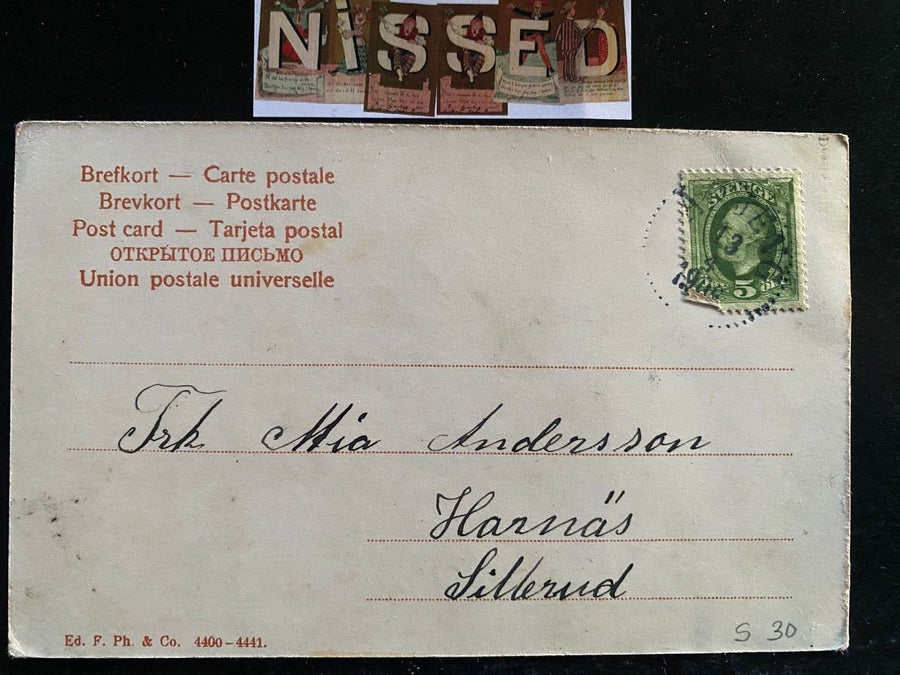 NISSED
Brefkort — Carte postale
Brevkort — Postkarte
Post card — Tarjeta postal
ОТКРЫТОЕ ПИСЬМО
Union postale universelle
SVERIGE
5
Frk Mia Andersson
Harnäs
Sillerud
Ed. F. Ph. & Co. 4400–4441.
S 30